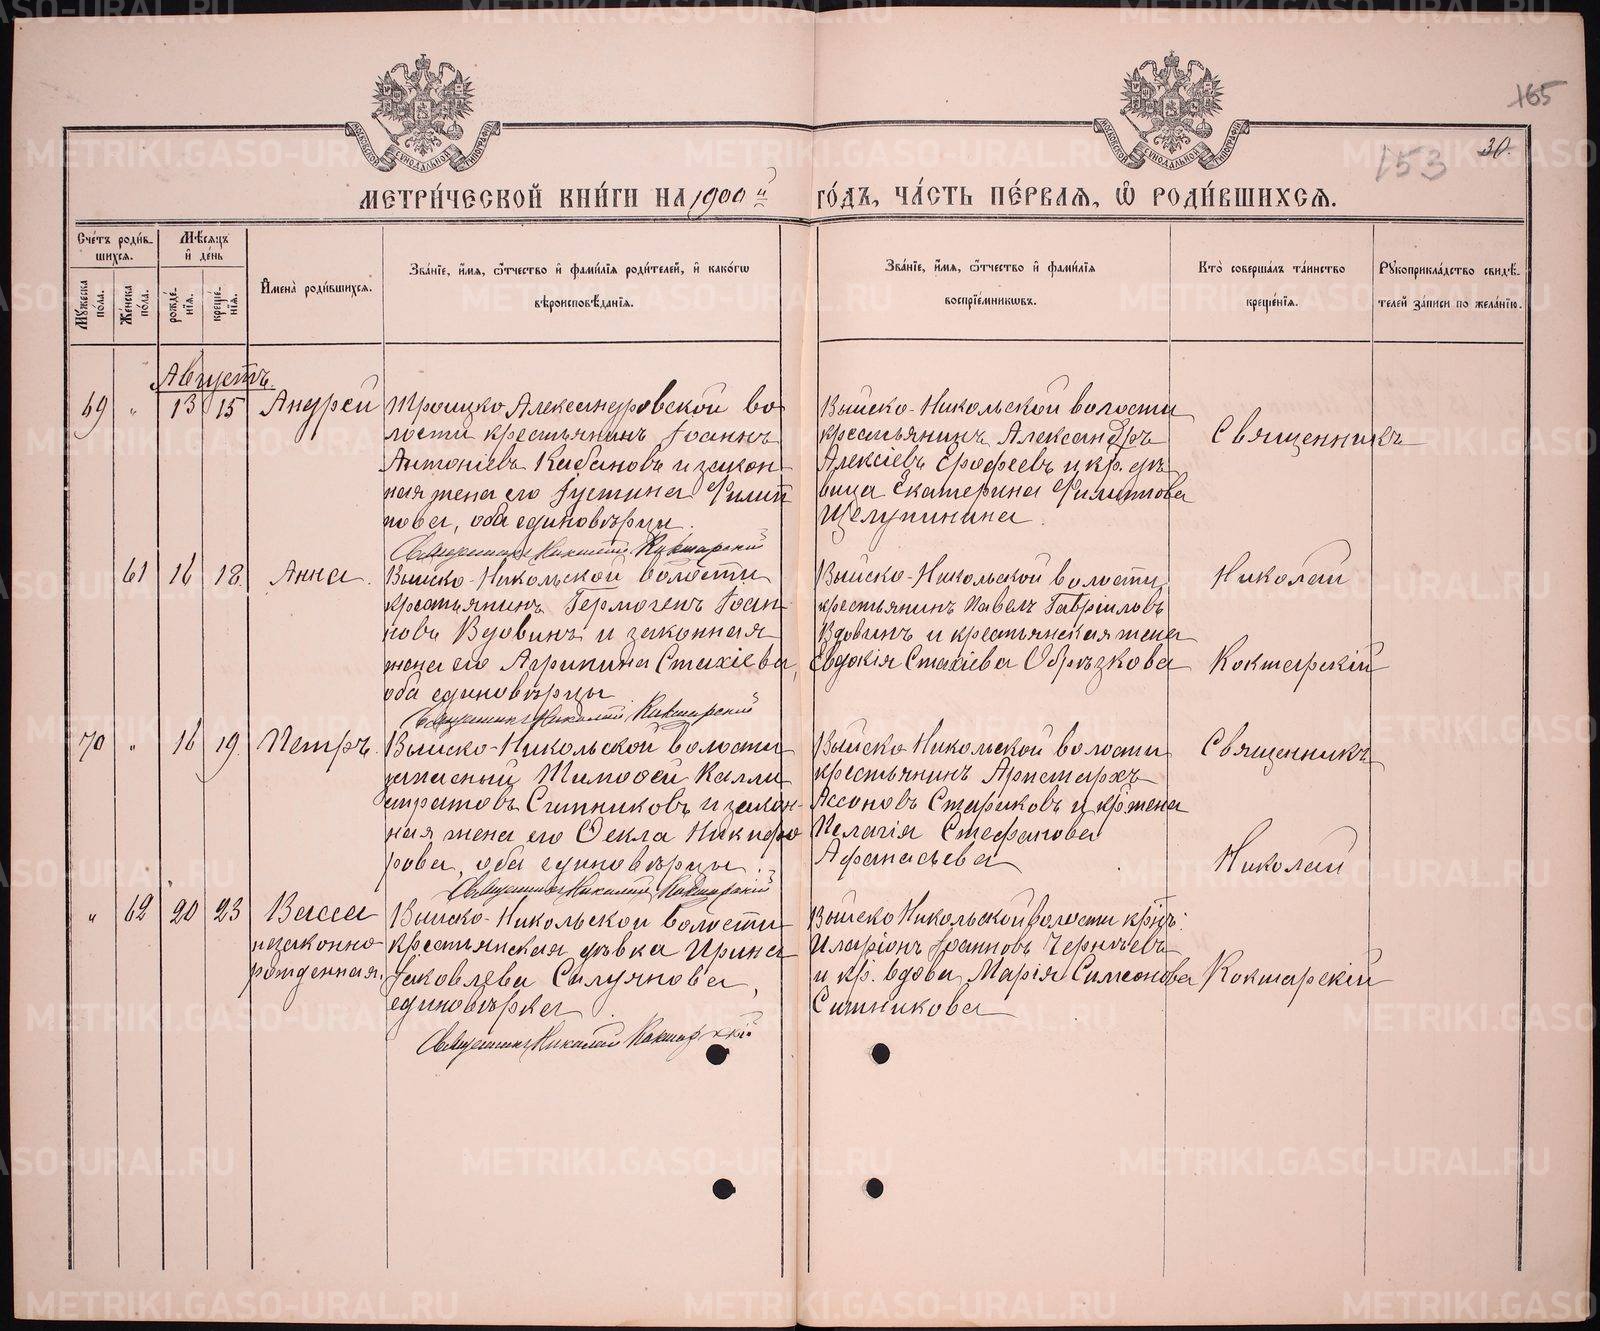 165
153
30.
МЕТРИ́ЧЕСКОЙ КНИ́ГИ НА 1900й ГО́ДЪ, ЧА́СТЬ ПЕ́РВАЯ, Ѿ РОДИ́ВШИХСЯ.
Сче́тъ роди́в-
шихся.
Мѣ́сяцъ
и҆ де́нь
Мꙋ́жеска по́ла.
Же́нска по́ла.
рожде́-
нїѧ.
креще́-
нїѧ.
И҆мена̀ роди́вшихся.
Зва́нїе, и҆́мѧ, ѻ҆́тчество и҆ фами́лїѧ роди́телей, и҆ како́гѡ
вѣроисповѣ́данїѧ.
Зва́нїе, и҆́мѧ, ѻ҆́тчество и҆ фами́лїѧ
воспрїе́мникѡвъ.
Кто̀ соверша́лъ та́инство
креще́нїѧ.
Рꙋкоприкла́дство свидѣ́-
телей за́писи по жела́нїю.
Августъ.
69 " 13 15 Андрей
Троицко Александровской во
лости крестьянинъ Іоаннъ
Антоніевъ Кабановъ и закон
ная жена его Іустина Филип
пова, оба единовѣрцы.
Священникъ Николай Кокшарскій
Выйско-Никольской волости
крестьянинъ Александръ
Алексіевъ Ерофеевъ и кр. дѣ
вица Екатерина Филиппова
Щелупинина.
Священникъ
61 16 18. Анна.
Выйско-Никольской волости
крестьянинъ Гермогенъ Іоан
новъ Вдовинъ и законная
жена его Агрипина Стахіева,
оба единовѣрцы
Священникъ Николай Кокшарскій
Выйско-Никольской волости
крестьянинъ Павелъ Гавріиловъ
Вдовинъ и крестьянская жена
Евдокія Стахіева Обрѣзкова
Николай
Кокшарскій
70 " 16 19. Петръ.
Выйско-Никольской волости
запасный Тимофей Калли
стратовъ Ситниковъ и закон-
ная жена его Ѳекла Никифо
рова, оба единовѣрцы.
Священникъ Николай Кокшарскій
Выйско Никольской волости
крестьянинъ Аристархъ
Ассоновъ Стариковъ и кр. жена
Пелагія Стефанова
Афанасьева
Священникъ
Николай
" 62 20 23 Васса
незаконно
рожденная.
Выйско-Никольской волости
крестьянская дѣвка Ирина
Іаковлева Силуянова,
единовѣрка.
Священникъ Николай Кокшарскій
Выйско Никольской волости крнъ:
Иларіонъ Іоанновъ Черныевъ
и кр. вдова Марія Симеонова
Ситникова
Кокшарскій
METRIKI.GASO-URAL.RU